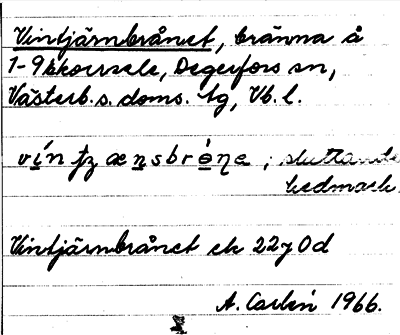 Vintjärnbrånet, bränna å
1-9 Ekorrsele, Degerfors sn,
Västerb. s. doms. tg, Vb. l.
sluttande
hedmark.
Vintjärnbrånet ek 22 y 0 d
A. Carlén 1966.